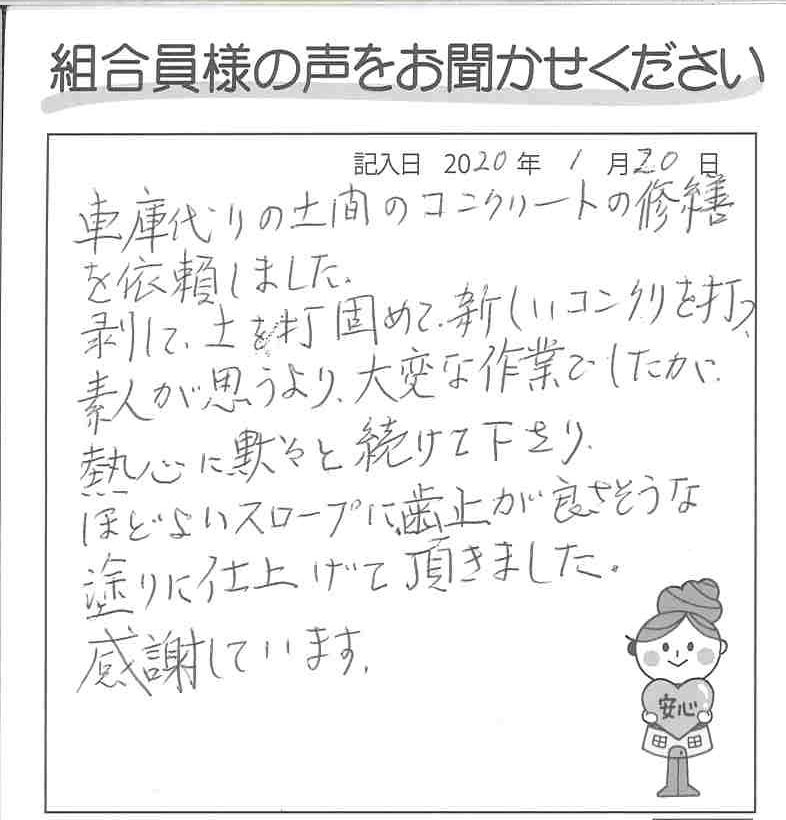 組合員様の声をお聞かせください
記入日 2020年 1月20日
車庫代りの土間のコンクリートの修繕
を依頼しました。
剥して、土を打固めて、新しいコンクリを打つ、
素人が思うより、大変な作業でしたが、
熱心に黙々と続けて下さり、
ほどよいスロープに、歯止が良さそうな
塗りに仕上げて頂きました。
感謝しています。
安心